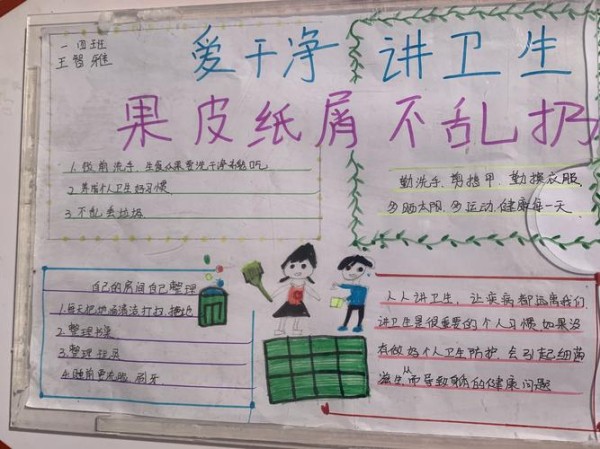 一四班
王智雅
爱干净 讲卫生
果皮纸屑 不乱扔
1. 饭前洗手 生食水果要洗干净才能吃
2. 养成个人卫生好习惯
3. 不乱丢垃圾
勤洗手 剪指甲 勤换衣服
多晒太阳 多运动 健康每一天
自己的房间自己整理
1. 每天把地面清洁打扫
2. 整理书桌
3. 整理玩具
4. 睡前要洗脸 刷牙
人人讲卫生，让疾病都远离我们
讲卫生是很重要的个人习惯 如果没
有做好个人卫生防护 会引起细菌
滋生从而导致身的健康问题